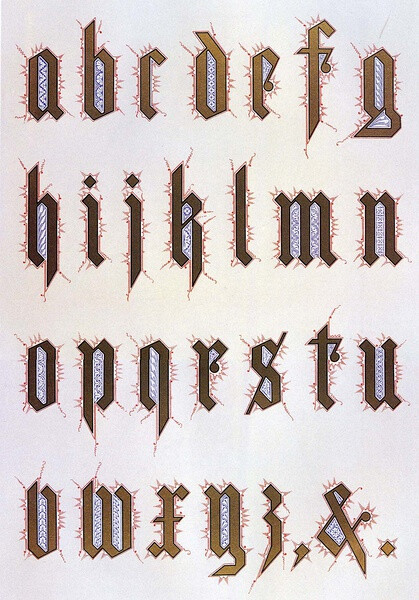 abcdefg
hijklmn
opqrstu
vwxyz,&.